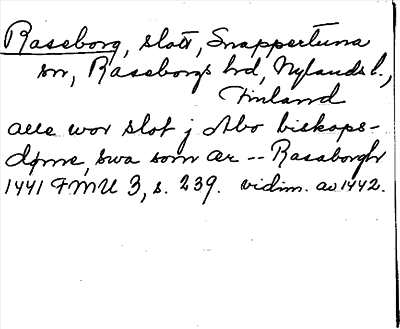 Raseborg, slott, Snappertuna
sn, Raseborgs hd, Nylands l.,
Finland
alle wor slot j Abo biskops-
døme, swa som ær -- Rasaborgh
1441 FMU 3, s. 239. vidim. av 1442.